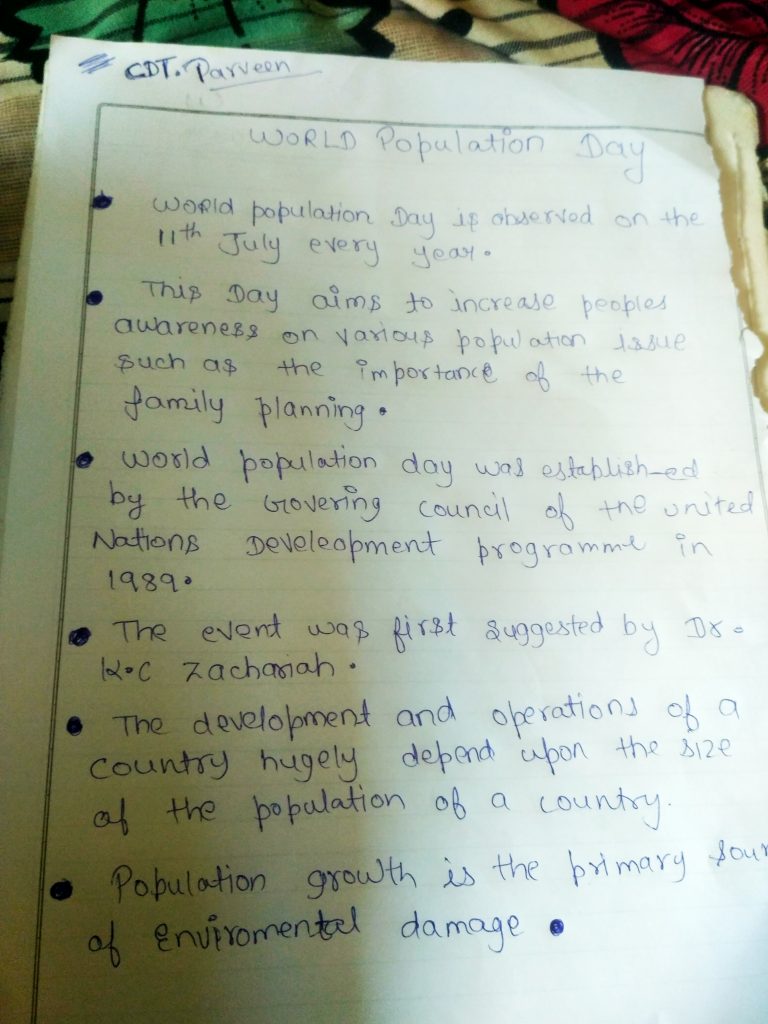 CDT. Parveen
WORLD Population Day
• World population Day is observed on the
11th July every year.
• This Day aims to increase peoples
awareness on various population issue
such as the importance of the
family planning.
• World population day was establish-ed
by the Govering council of the united
Nations Develeopment programme in
1989.
• The event was first suggested by Dr.
K.C Zachariah.
• The development and operations of a
country hugely depend upon the size
of the population of a country.
• Population growth is the primary sour
of Enviromental damage.